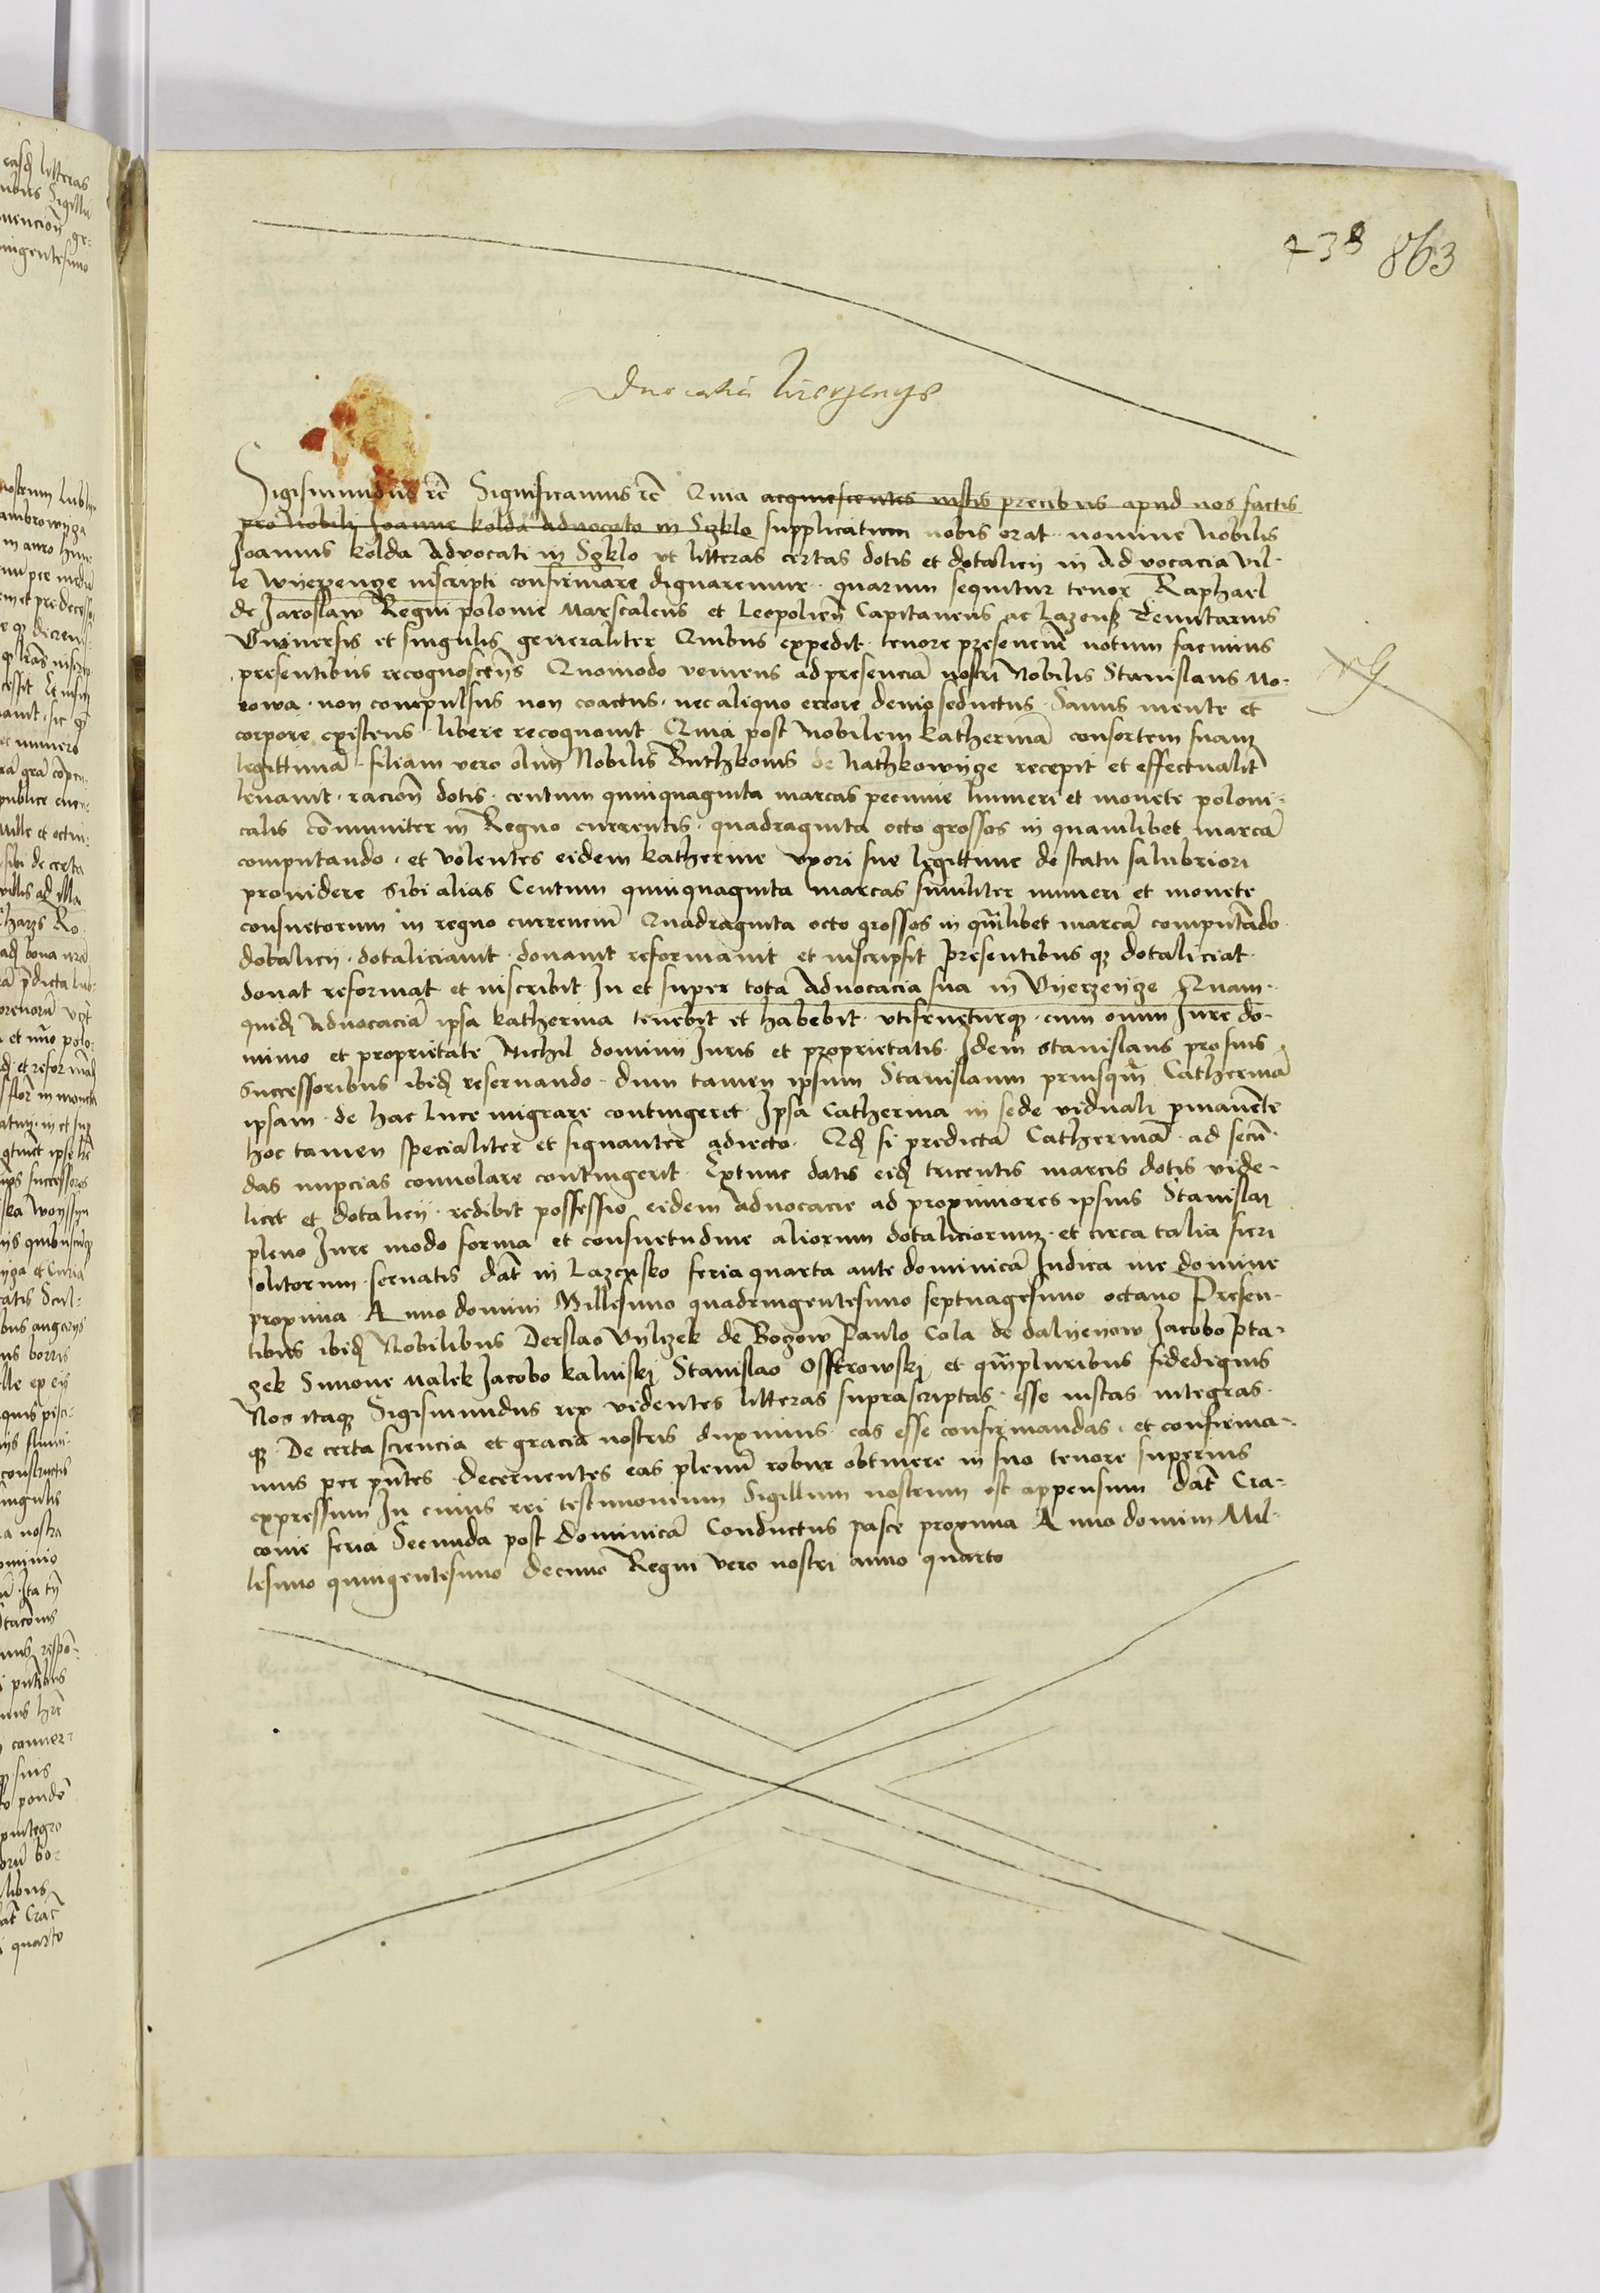 438 863
Aduocatia Vierzenye
Sigismundus rc̄ Significamus rc̄ Quia acquiescentes iustis precibus apud nos factis
pro Nobili Joanne kolda Advocato in Szklo supplicatum nobis erat nomine Nobilis
Joannis kolda Advocati in Szklo vt litteras certas dotis et dotalicij in Advocacia vil-
le Wyerzenge inscripti confirmare dignaremur quarum sequitur tenor Raphael
de Jaroslaw Regni polonie Marscalcus et Leopolieñ Capitaneus ac Lazensz Tenutarius
Vniversis et singulis generaliter Quibus expedit tenore presenciū notum facimus
presentibus recognoscens Quomodo veniens ad presenciā nostri Nobilis Stanislaus Mo-
rowa non conpulsus non coactus nec aliquo errore devio seductus Sanus mente et
corpore existens libere recognouit Quia post Nobilem katherinā consortem suam
legittimā filiam vero olim Nobilis Buthkonis de hathkowyge recepit et effectualit̄
leuauit racioñ dotis centum quinquaginta marcas pecunie numeri et monete poloni-
calis cōmuniter in Regno currentis quadraginta octo grossos in quamlibet marcā
computando et volentes eidem katherine vxori sue legittime de statu salubriori
prouidere sibi alias Centum quinquaginta marcas similiter numeri et monete
consuetorum in regno currenciū Quadraginta octo grossos in qm̄libet marcā computādo
dotalicij dotaliciauit donauit reformauit et inscripsit presentibus qz dotaliciat
donat reformat et inscribit In et super totā Advocacia sua in Vyerzenge Quam-
quidz Aduocaciā ipsa katherina tenebit et habebit vtifrueturqz cum omni Jure do-
minio et proprietate Nichil dominij Juris et proprietatis Idem Stanislaus pro suis
successoribus ibidz reseruando dum tamen ipsum Stanislaum priusqm̄ Catherinā
ipsam de hac luce migrare contingeret Ipsa Catherina in sede viduali pmanēte
hoc tamen specialiter et signanter adiecto Qdz si predictā Catherinā ad secū-
das nupcias conuolare contingerit Extunc datis eidz tricentis marcis dotis vide-
licet et dotalicij redibit possessio eidem Aduocacie ad proximiores ipsius Stanislai
pleno Jure modo forma et consuetudine aliorum dotaliciorum et circa talia fieri
solitorum seruatis dat̄ in Lazensko feria quarta ante dominicā Judica me domine
proxima Anno domini Millesimo quadringentesimo septuagesimo octauo Presen-
tibus ibidz Nobilibus Derslao Vylczek de Bozow Paulo Cola de dalyeyow Jacobo pta-
zek Simone Malek Jacobo kaliniskj Stanislao Osstrowskj et qm̄pluribus fidedignis
Nos itaqz Sigismundus rex videntes litteras suprascriptas esse iustas integras
qz De certa sciencia et gracia nostris duximus eas esse confirmandas et confirma-
mus per pn̄tes decernentes eas plenū robur obtinere in suo tenore superius
expressum In cuius rei testimonium Sigillum nostrum est appensum dat̄ Cra-
couie feria Secunda post dominicā Conductus pasce proxima Anno domini Mil-
lesimo quingentesimo decimo Regni vero nostri anno quarto